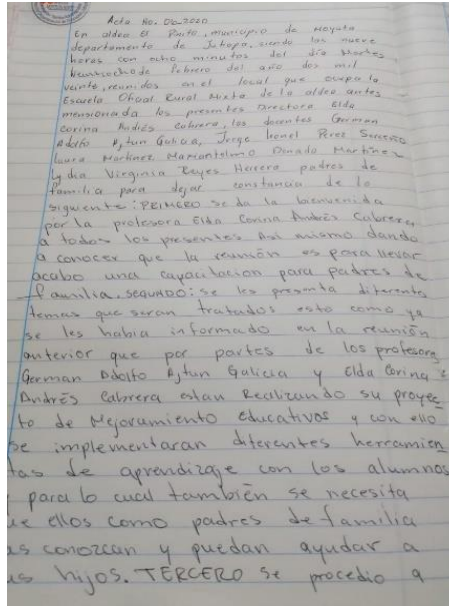 Acta No. 06-2020
En aldea El Pinito, municipio de Moyuta
departamento de Jutiapa, siendo las nueve
horas con ocho minutos del día Martes
de Febrero del año dos mil
veinte, reunidos en el local que ocupa la
Escuela Oficial Rural Mixta de la aldea antes
mencionada los presentes Directora Elda
Corina Andrés Cabrera, los docentes German
Adolfo Ajtun Galicia, Jorge Leonel Pérez
Martínez Marcantelmo Martínez
Lydia Virginia Reyes Herrera padres de
familia para dejar constancia de lo
siguiente: PRIMERO se da la bienvenida
por la profesora Elda Corina Andrés Cabrera,
a todos los presentes Asi mismo dando
a conocer que la reunión es para llevar
acabo una capacitacion para padres de
familia. SEGUNDO: se les presenta diferentes
temas que seran tratados esto como ya
se les habia informado en la reunión
anterior que por partes de los profesores
German Adolfo Ajtun Galicia y Elda Corina
Andrés Cabrera estan Realizando su proyec
to de Mejoramiento educativos y con ello
se implementaran diferentes herramien
tas de aprendizaje con los alumnos
para lo cual también se necesita
ue ellos como padres de familia
as conozcan y puedan ayudar a
us hijos. TERCERO se procedio a